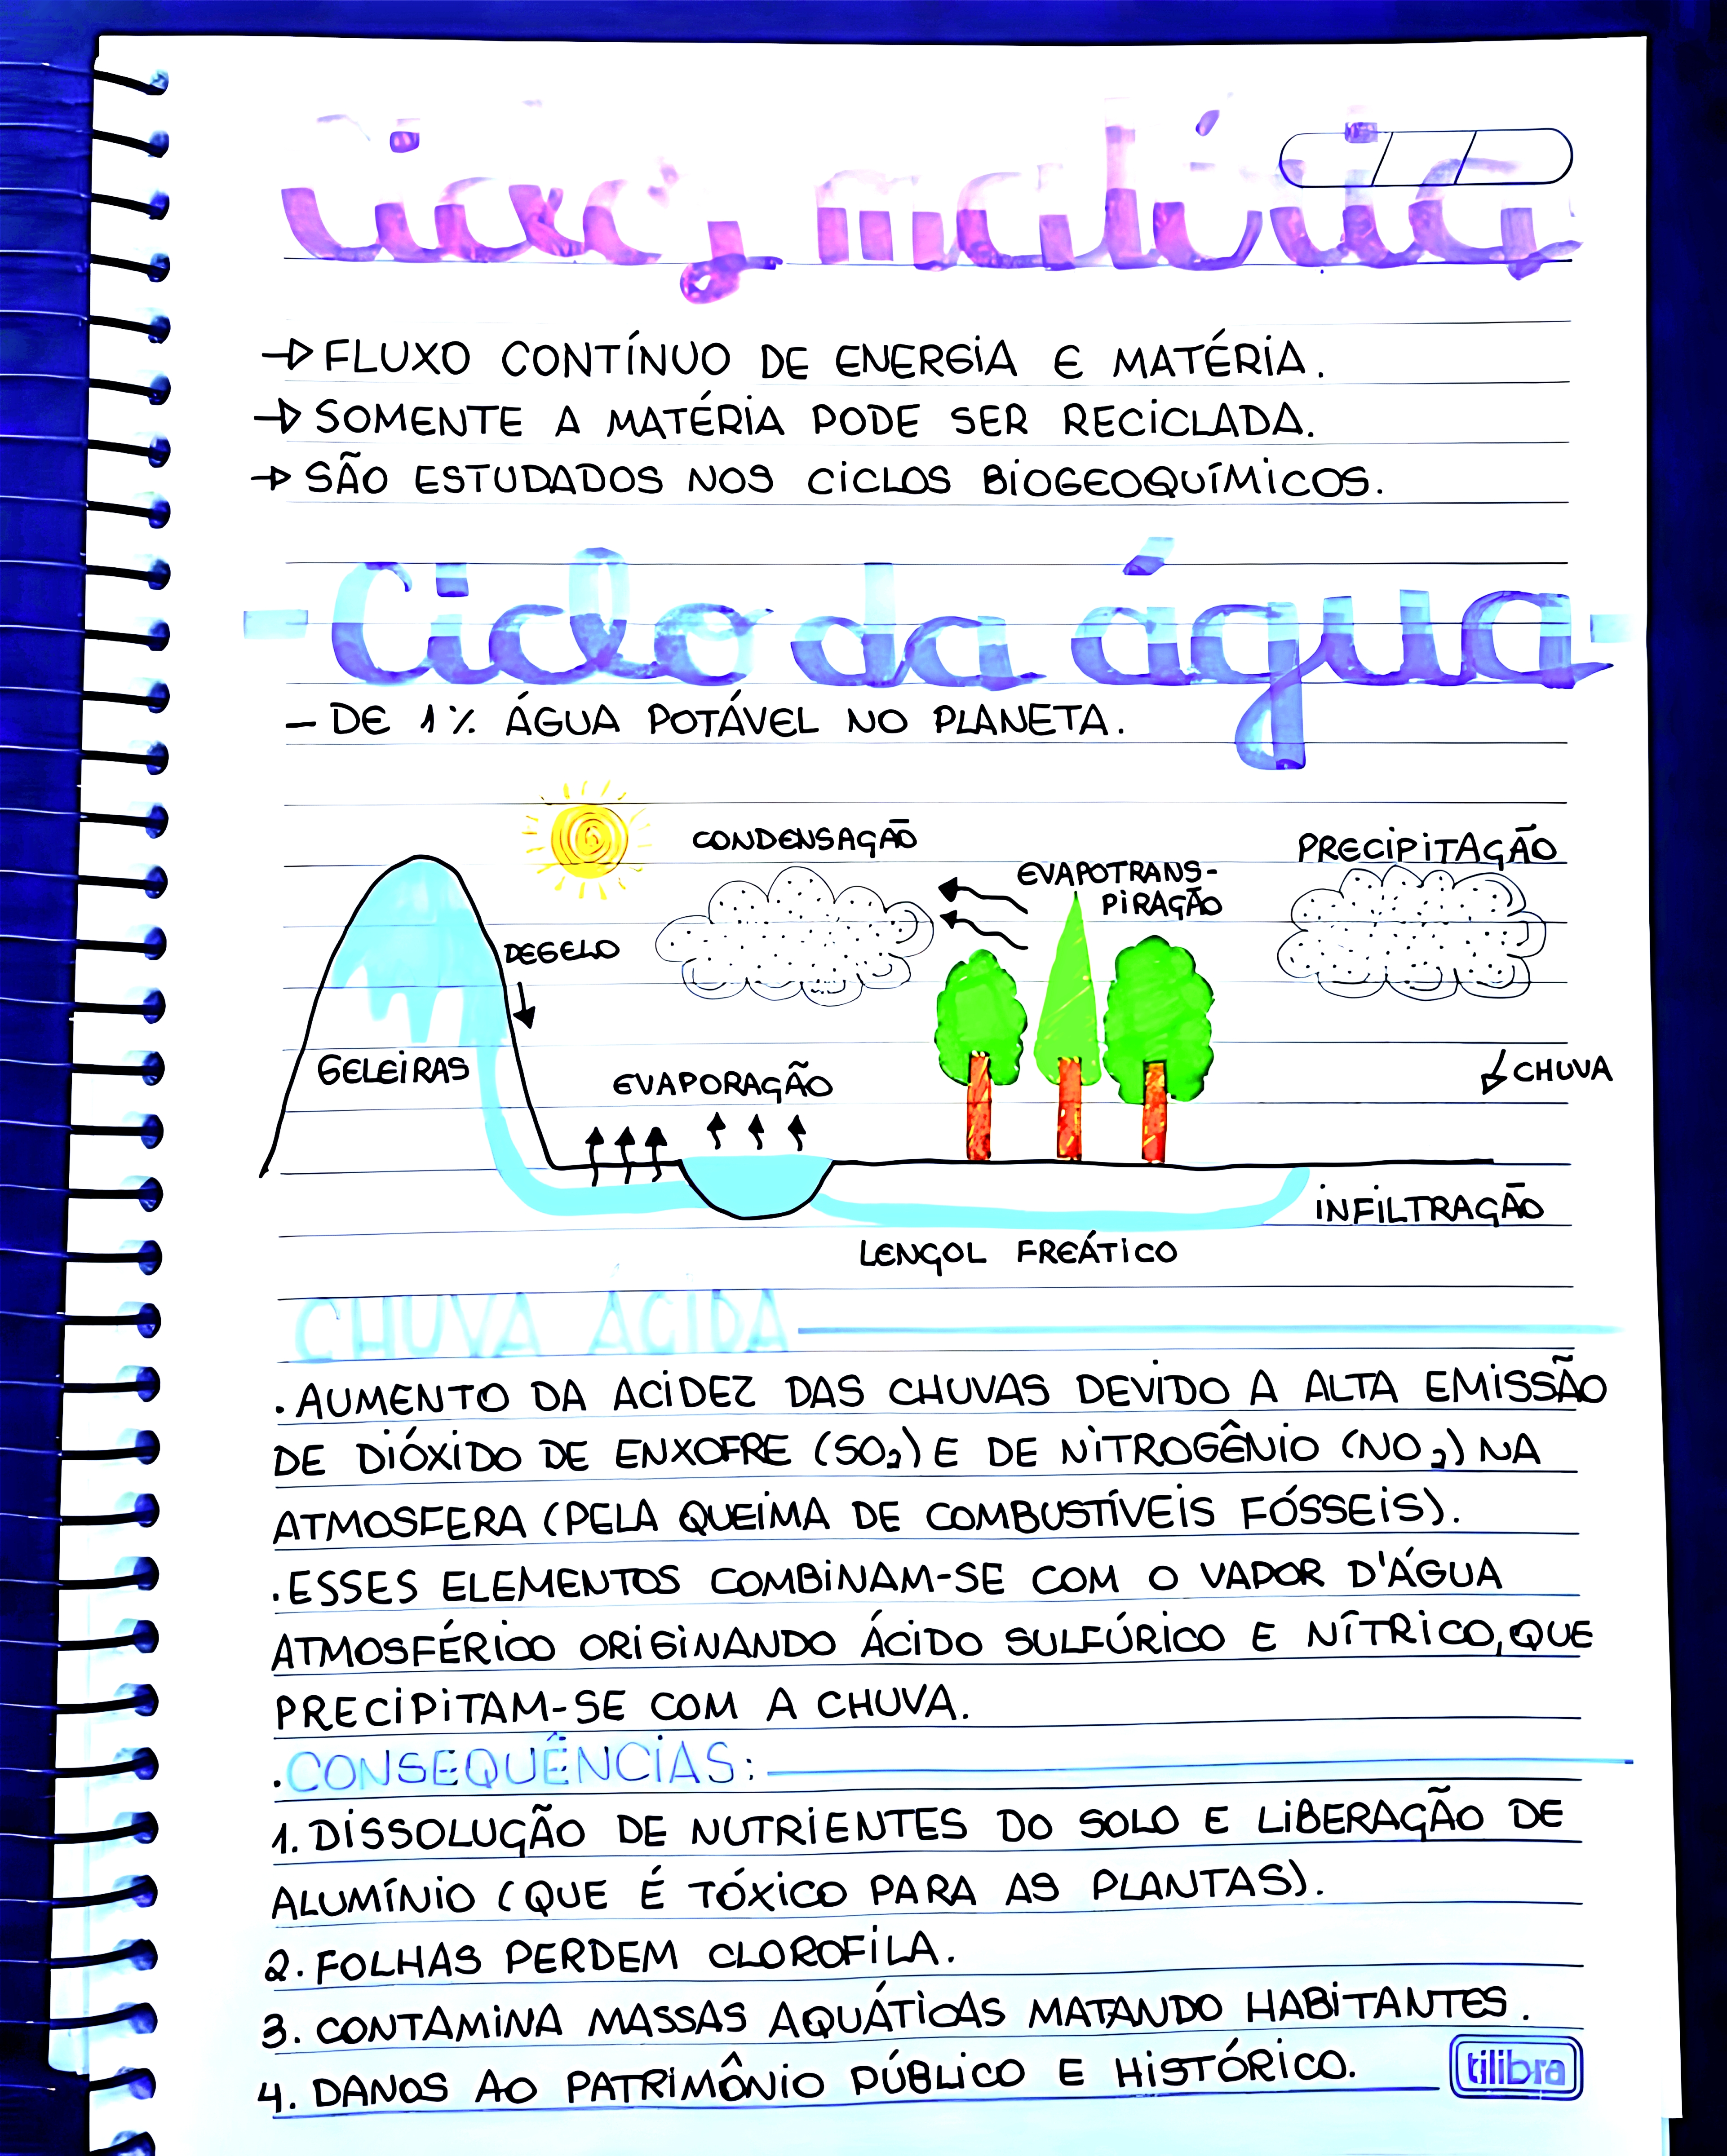 → FLUXO CONTÍNUO DE ENERGIA E MATÉRIA.
→ SOMENTE A MATÉRIA PODE SER RECICLADA.
→ SÃO ESTUDADOS NOS CICLOS BIOGEOQUÍMICOS.
- Ciclo da água -
- DE 1% ÁGUA POTÁVEL NO PLANETA.
CONDENSAÇÃO
PRECIPITAÇÃO
EVAPOTRANS-
PIRAÇÃO
DEGELO
GELEIRAS
EVAPORAÇÃO
CHUVA
INFILTRAÇÃO
LENÇOL FREÁTICO
CHUVA ÁCIDA
. AUMENTO DA ACIDEZ DAS CHUVAS DEVIDO A ALTA EMISSÃO
DE DIÓXIDO DE ENXOFRE (SO₂) E DE NITROGÊNIO (NO₂) NA
ATMOSFERA (PELA QUEIMA DE COMBUSTÍVEIS FÓSSEIS).
. ESSES ELEMENTOS COMBINAM-SE COM O VAPOR D'ÁGUA
ATMOSFÉRICO ORIGINANDO ÁCIDO SULFÚRICO E NÍTRICO, QUE
PRECIPITAM-SE COM A CHUVA.
. CONSEQUÊNCIAS:
1. DISSOLUÇÃO DE NUTRIENTES DO SOLO E LIBERAÇÃO DE
ALUMÍNIO (QUE É TÓXICO PARA AS PLANTAS).
2. FOLHAS PERDEM CLOROFILA.
3. CONTAMINA MASSAS AQUÁTICAS MATANDO HABITANTES.
4. DANOS AO PATRIMÔNIO PÚBLICO E HISTÓRICO.
tilibra